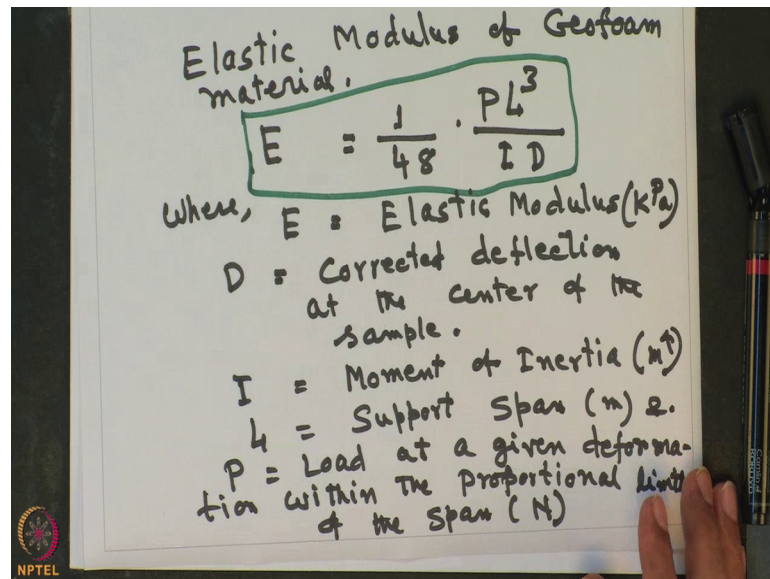 Elastic Modulus of Geofoam
material.
E = 1/48 · PL³/I D
where, E = Elastic Modulus (kPa)
D = Corrected deflection
at the center of the
sample.
I = Moment of Inertia (m⁴)
L = Support span (m) &.
P = Load at a given deforma-
tion within the proportional limit
of the span (N)
NPTEL